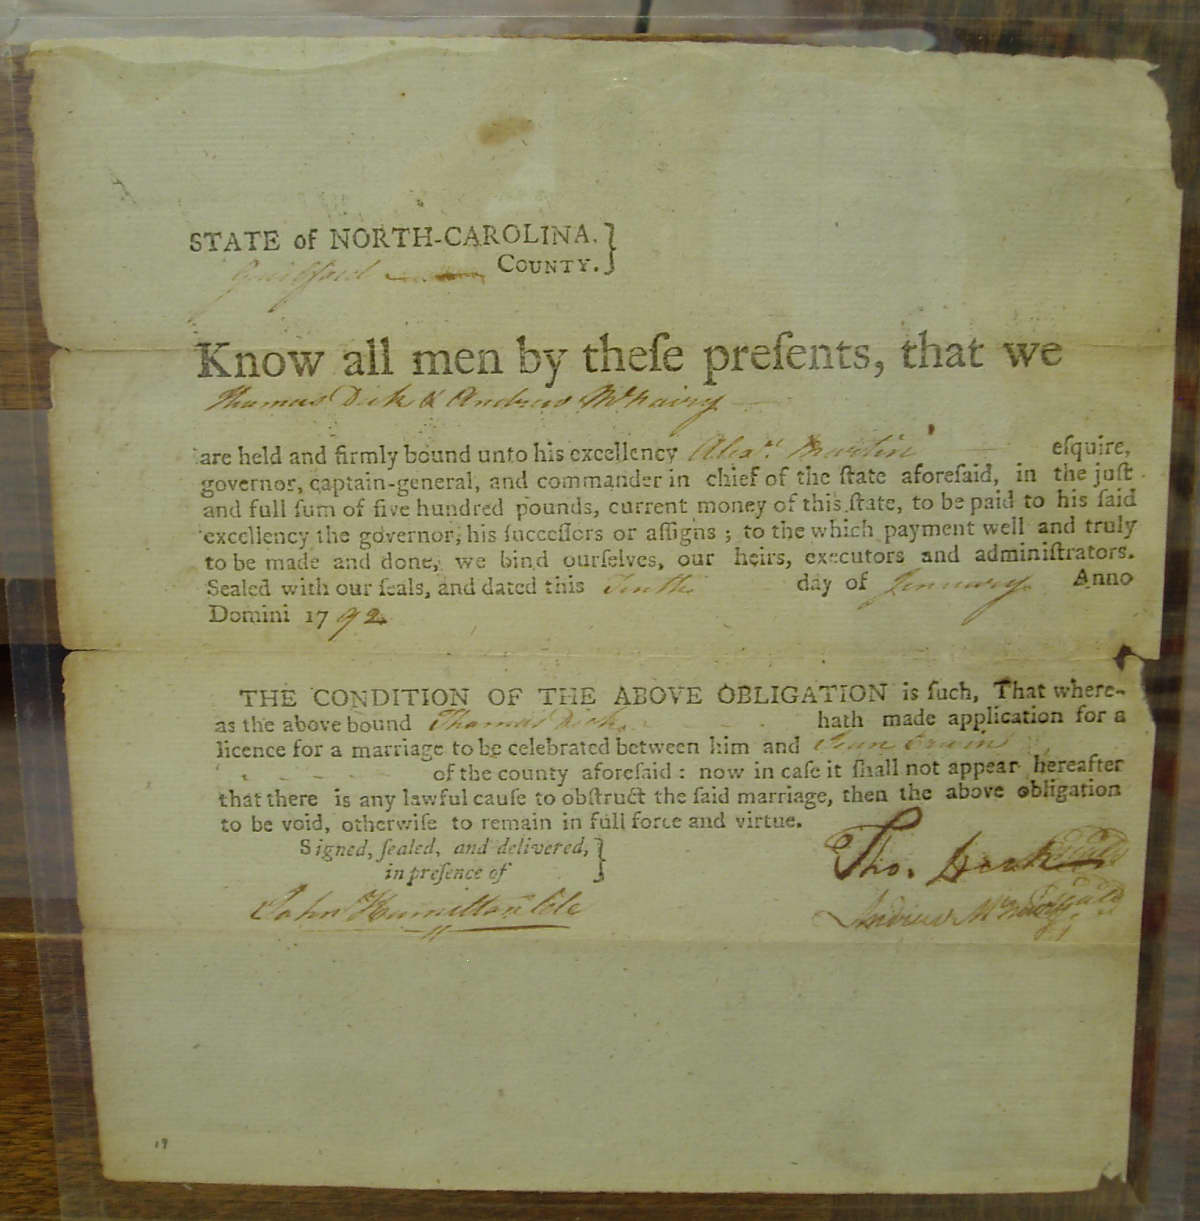 STATE of NORTH-CAROLINA. }
Guilford COUNTY. }
Know all men by theſe preſents, that we
Thomas Dick & Andrew McNairy
are held and firmly bound unto his excellency Alexr. Martin eſquire,
governor, captain-general, and commander in chief of the ſtate aforeſaid, in the juſt
and full ſum of five hundred pounds, current money of this ſtate, to be paid to his ſaid
excellency the governor, his ſucceſſors or aſſigns ; to the which payment well and truly
to be made and done, we bind ourſelves, our heirs, executors and adminiſtrators.
Sealed with our ſeals, and dated this Tenth day of Jenuary Anno
Domini 1792
THE CONDITION OF THE ABOVE OBLIGATION is ſuch, That where-
as the above bound Thomas Dick hath made application for a
licence for a marriage to be celebrated between him and Jean Erwin
of the county aforeſaid : now in caſe it ſhall not appear hereafter
that there is any lawful cauſe to obſtruct the ſaid marriage, then the above obligation
to be void, otherwiſe to remain in full force and virtue.
Signed, ſealed, and delivered, }
in preſence of }
Tho. Dick
John Hamilton
Andrew McNairy
19